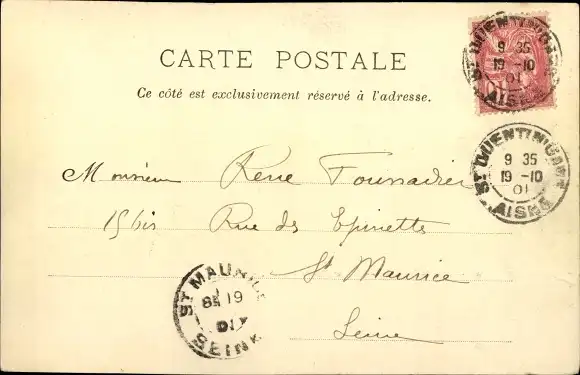 CARTE POSTALE
Ce côté est exclusivement réservé à l'adresse.
Monsieur René Fournadier
15 bis Rue des Epinettes
St Maurice
Seine
ST QUENTIN GARE
9 35
19 -10
01
AISNE
ST QUENTIN GARE
9 35
19 -10
01
AISNE
ST MAURICE
8E 19
01
SEINE
10